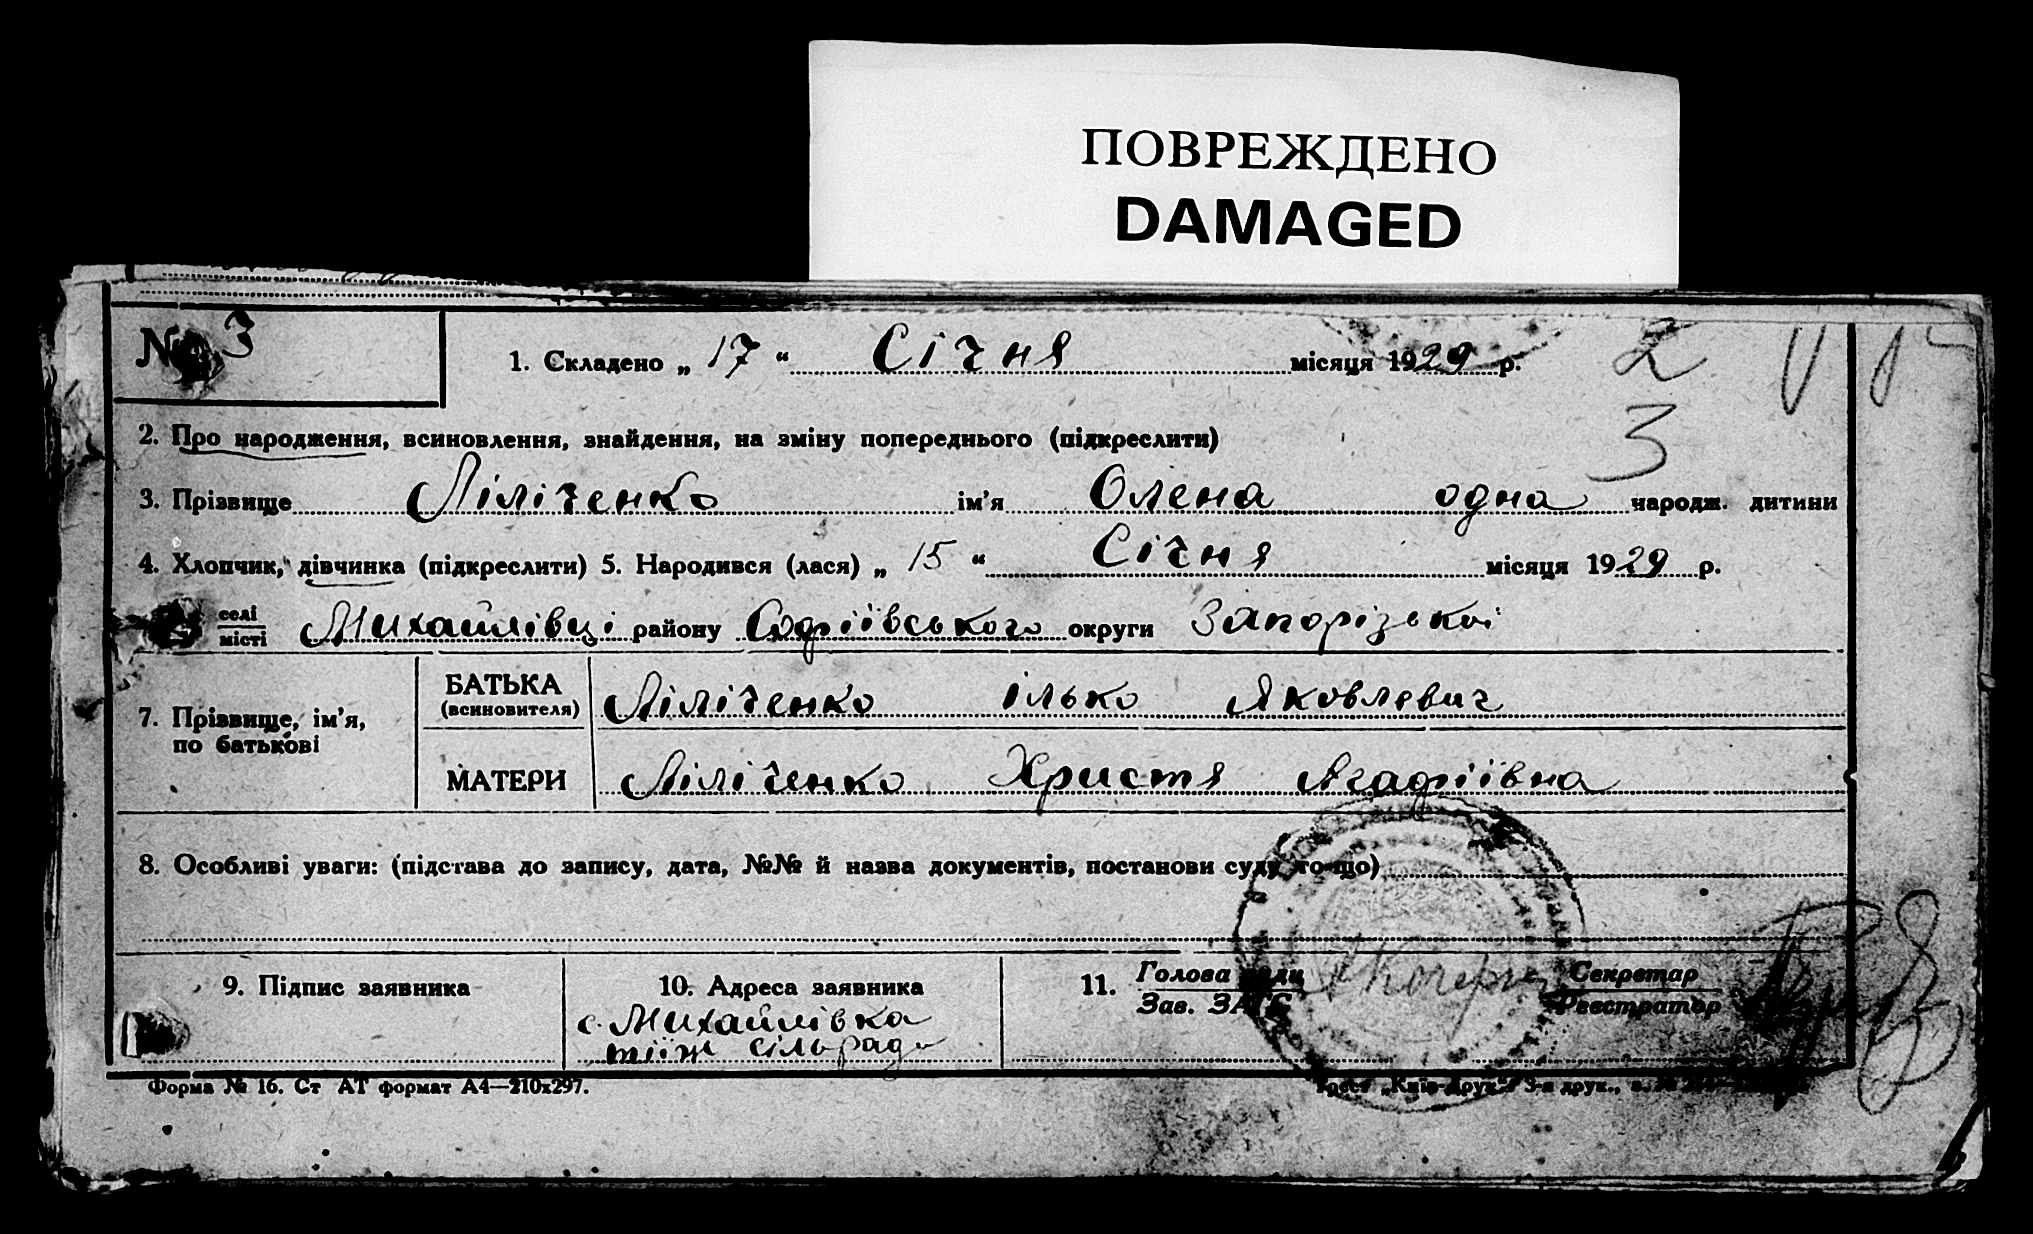 ПОВРЕЖДЕНО
DAMAGED
№ 3
1. Складено „ 17 “ Січня місяця 1929 р.
2
3
2. Про народження, всиновлення, знайдення, на зміну попереднього (підкреслити)
3. Прізвище Лілітенко ім'я Олена одна народж. дитини
4. Хлопчик, дівчинка (підкреслити) 5. Народився (лася) „ 15 “ Січня місяця 1929 р.
селі
місті Михайлівці району Софіївського округи Запорізької
7. Прізвище, ім'я, по батькові
БАТЬКА (всиновителя) Ліліченко ілько Яковлевич
МАТЕРИ Ліліченко Христя Агафіївна
8. Особливі уваги: (підстава до запису, дата, №№ й назва документів, постанови суду то-що)
9. Підпис заявника
10. Адреса заявника
с. Михайлівка
тііж сільради
11. Голова ради
Зав. ЗАГС
Секретар
Реєстратор
Форма № 16. Ст АТ формат А4—210х297.
Трест „Київ-Друк“ 3-я друк.,